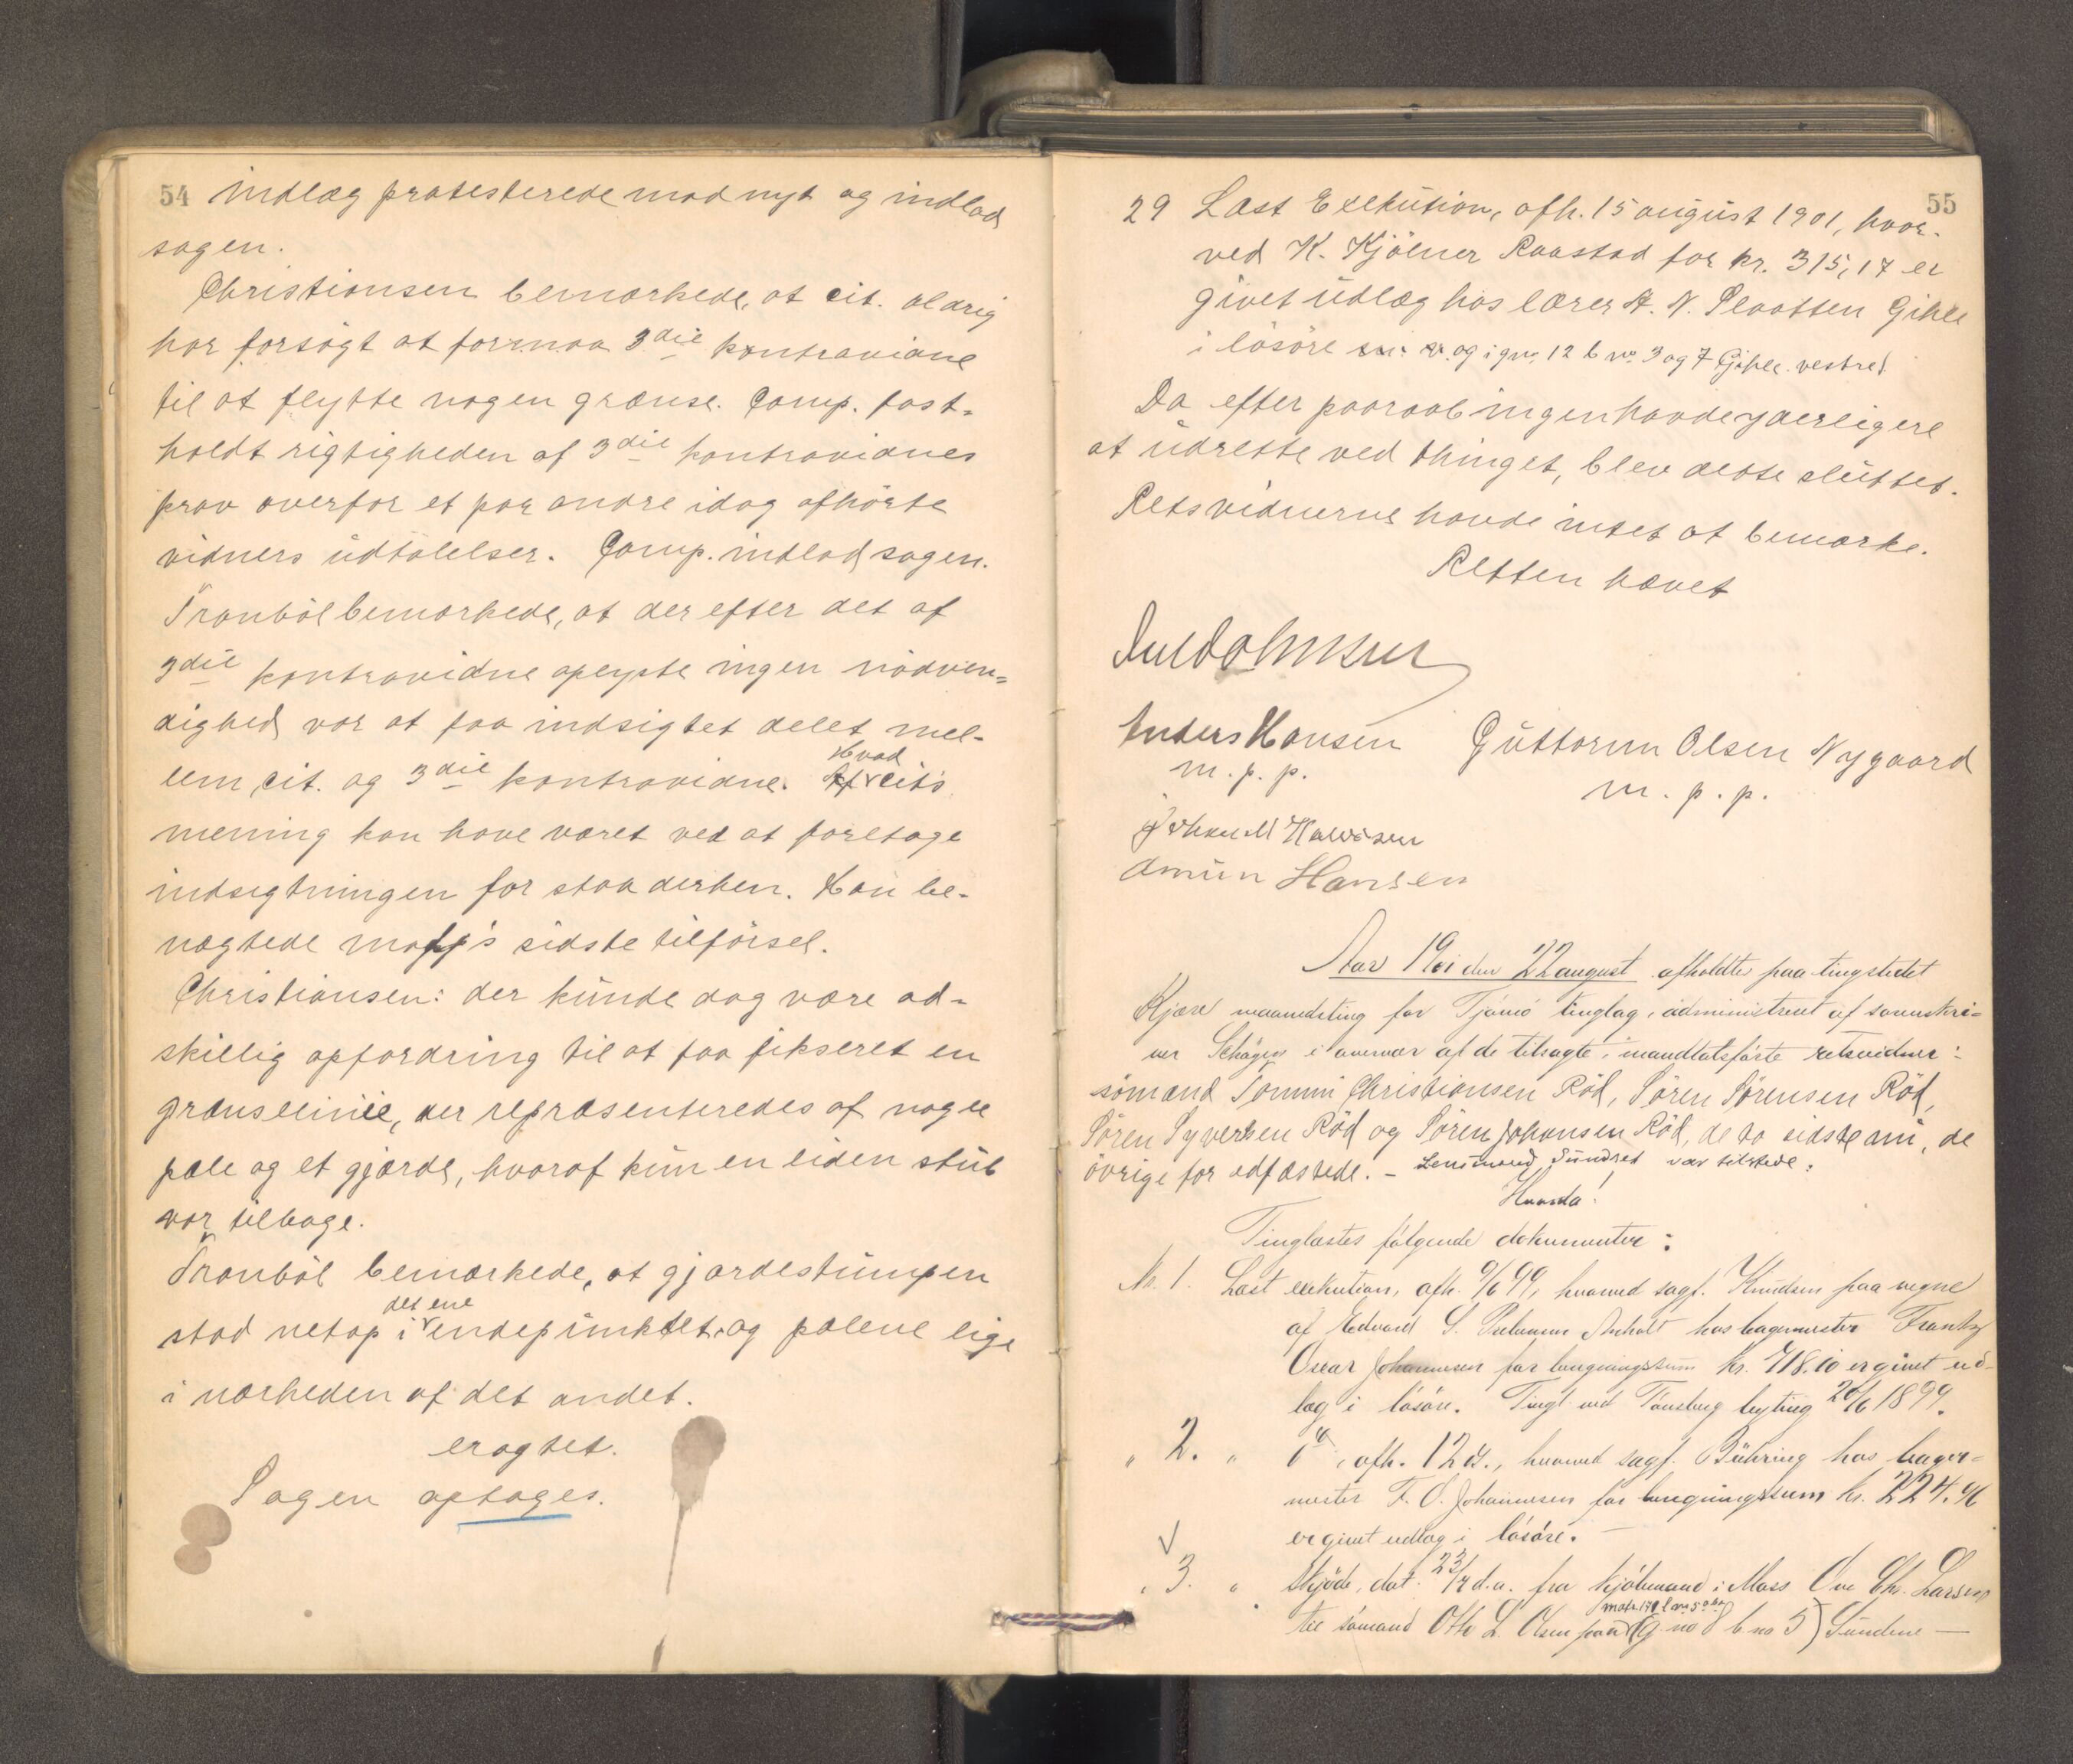 54 indlæg protesterede mod nyt og indlod
sagen.
Christiansen bemærkede, at cit. aldrig
har forsøgt at formaa 3die kontravidne
til at flytte nogen grænse. Comp. fast-
holdt rigtigheden af 3die kontravidnes
prov overfor et par andre idag afhørte
vidners udtalelser. Comp. indlod sagen.
Tranböl bemærkede, at der efter det af
3die kontravidne oplyste ingen nödven-
dighed var at faa indsigtet delet mel-
lem cit. og 3die kontravidne. Hvad cit's
mening kan have været ved at foretage
indsigtningen for staa derhen. Han be-
nægtede modp's sidste tilförsel.
Christiansen: der kunde dog være ad-
skillig opfordring til at faa fikseret en
grænselinie, der repræsenteredes af nogle
pæle og et gjærde, hvoraf kun en liden stub
var tilbage.
Tranböl bemærkede, at gjærdestumpen
stod netop i det ene endepunkt og pælene lige
i nærheden af det andet.
eragtet.
Sagen optages.
55
29 Læst Exekution, afh. 15 august 1901, hvor-
ved K. Kjölner Raastad for kr. 315,17 er
givet udlæg hos lærer A. N. Plaatten Gihle
i lösöre og i gno. 12 b no 3 og 7 Gihle vestre.
Da efter paaraab ingen havde yderligere
at udrette ved thinget, blev dette sluttet.
Retsvidnerne havde intet at bemærke.
Retten hævet
Anders Hansen Guttorm Olsen Nygaard
m. p. p. m. p. p.
Johan M Halvorsen
Amun Hansen
Aar 1901 den 22 august afholdtes paa tingstedet
Kjære maanedsting for Tjömö tinglag, administreret af sorenskri-
ver Schöyen i overvær af de tilsagte, i mandtalsförte retsvidner:
sömænd Tommi Christiansen Röd, Sören Sörensen Röd,
Sören Syversen Röd og Sören Johansen Röd, de to sidste nu, de
övrige för edfæstede. – Lensmand Sundret var tilstede:
Hvorda!
Tinglæstes fölgende dokumenter:
No. 1. Læst exekution, afh. 9/6 99, hvorved sagf. Knudsen paa vegne
af Edvard S. Anholt hos bagermester Frantz
Oscar Johannesen for bevgningssum kr. 718.10 er givet ud-
læg i lösöre. Tingl. ved Tönsberg byting 20/6 1899.
" 2. " do, afh. 12 ds., hvorved sagf. Bühring hos bager-
mester F. O. Johannesen for bevgningssum kr. 224.96
er givet udlæg i lösöre. –
" 3. " Skjöde, dat. 23/7 d.a. fra kjöbmand i Moss Ove Chr. Larsen
til sömand Otto L. Olsen paa (g no 8 b no 5) Sundene –